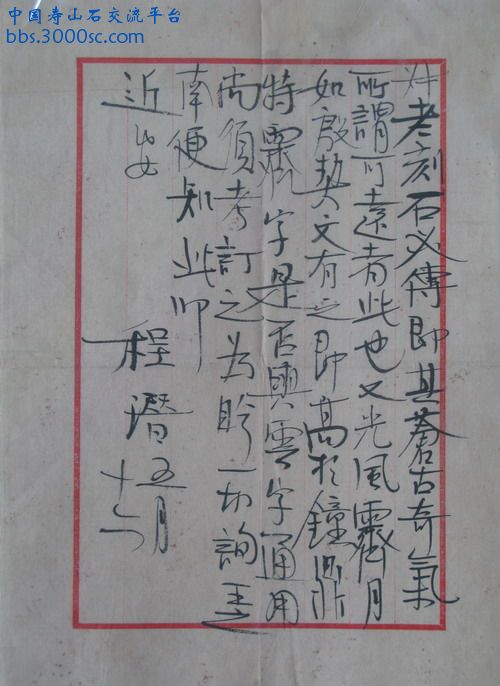 中国寿山石交流平台
bbs.3000sc.com
老刻石必傳即其蒼古奇氣
所謂可遠者此也又光風霽月
如殷契文有之即高於鐘鼎
特霽字是否與雲字通用
尚須考訂之為盼一切詢王
南便知此叩
近安
程潛五月
十